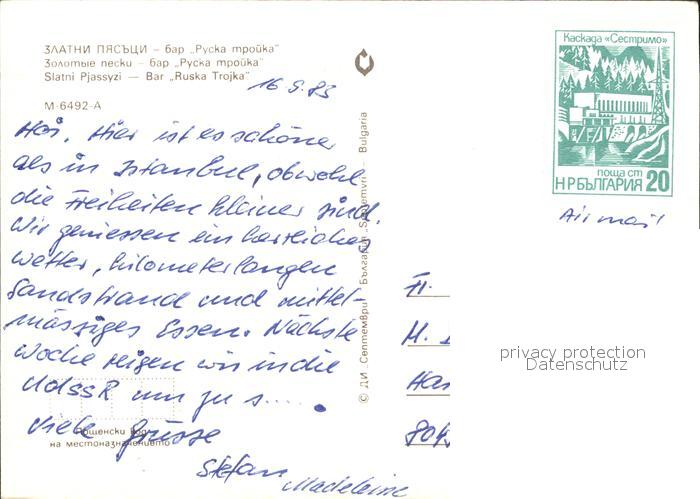 ЗЛАТНИ ПЯСЪЦИ – бар „Руска тройка"
Золотые пески – бар „Руска тройка"
Slatni Pjassyzi – Bar „Ruska Trojka"
16.9.83
М-6492-А
Hoi, Hier ist es schöner
als in Istanbul, obwohl
die Freiheiten kleiner sind.
Wir geniessen ein herrliches
Wetter, kilometerlangen
Sandstrand und mittel-
mässiges Essen. Nächste
Woche reisen wir in die
UdSSR um zu s.....
Viele Grüsse
Stefan
Madeleine
Пощенски код
на местоназначението
© ДИ „Септември" България „Septemvri" Bulgaria
Каскада «Сестримо»
поща ст
НР БЪЛГАРИЯ 20
Air mail
Fr.
privacy protection
Datenschutz